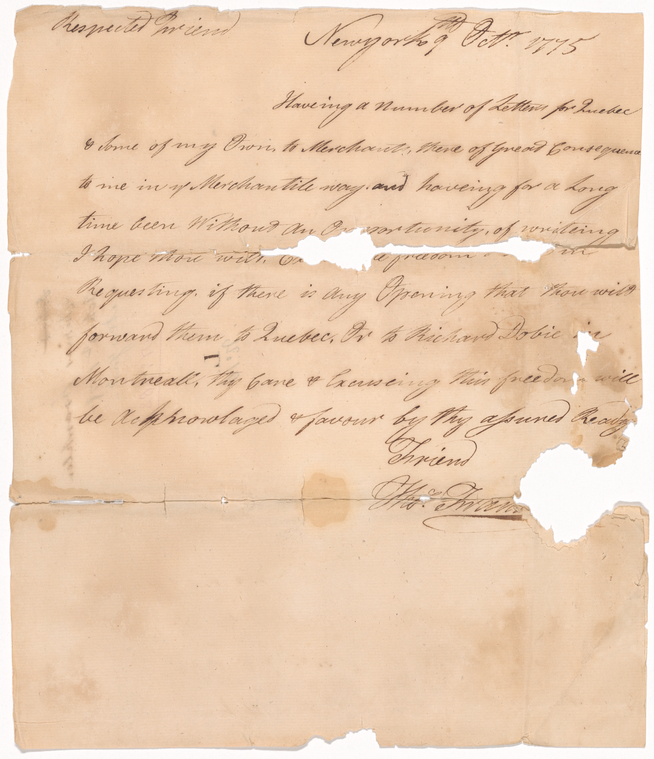 Respected Friend
Newyork 9th Octr. 1775
Haveing a number of Letters for Quebec
& Some of my Own, to Merchants, there of Great Consequence
to me in ye Merchantile way. and haveing for a Long
time been Without an Opportunity, of writeing
I hope thou will, freedom
Requesting, if there is any Opening that thou will
forward them to Quebec, Or to Richard Dobie in
Montreall, thy Care & Excuseing this freedom will
be Acknowlaged a favour by thy assured Ready
Friend
Thos.